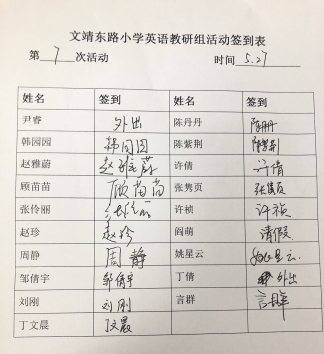 文靖东路小学英语教研组活动签到表
第 7 次活动 时间 5.27
姓名 签到 姓名 签到
尹睿 外出 陈丹丹 陈丹丹
韩园园 韩园园 陈紫荆 陈紫荆
赵雅蔚 赵雅蔚 许倩 许倩
顾苗苗 顾苗苗 张隽页 张隽页
张伶丽 张伶丽 许祯 许祯
赵珍 赵珍 阎萌 请假
周静 周静 姚星云 姚星云
邹倩宇 邹倩宇 丁倩 外出
刘刚 刘刚 言群 言群
丁文晨 丁文晨